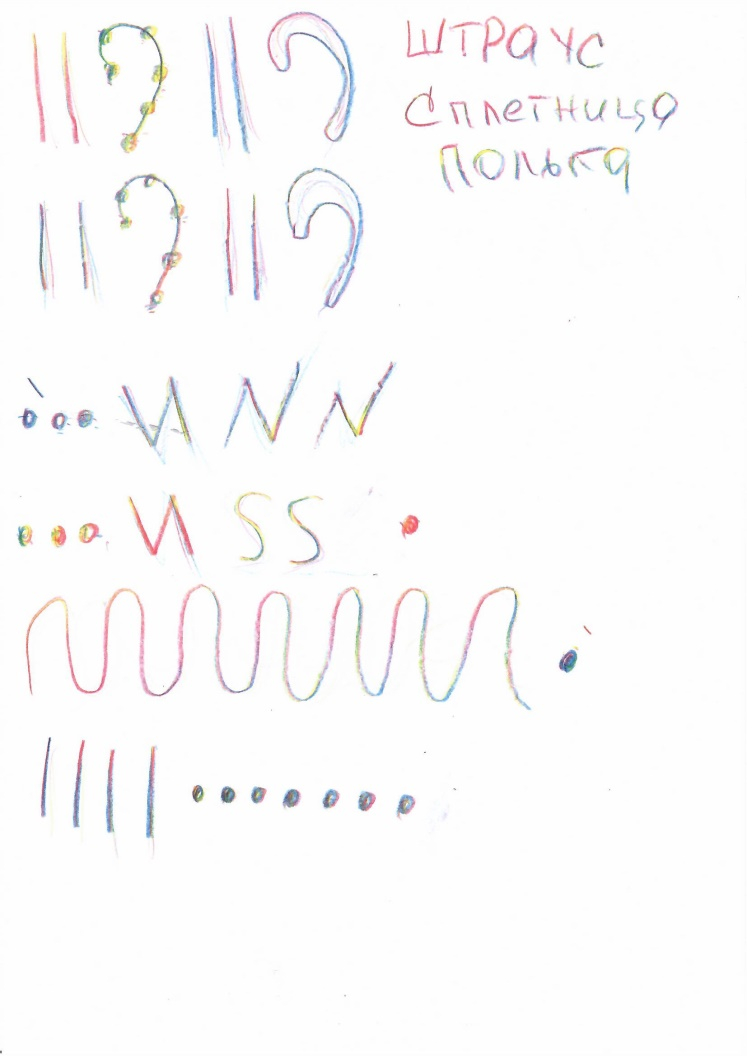 ШТРАУС
Сплетница
полька